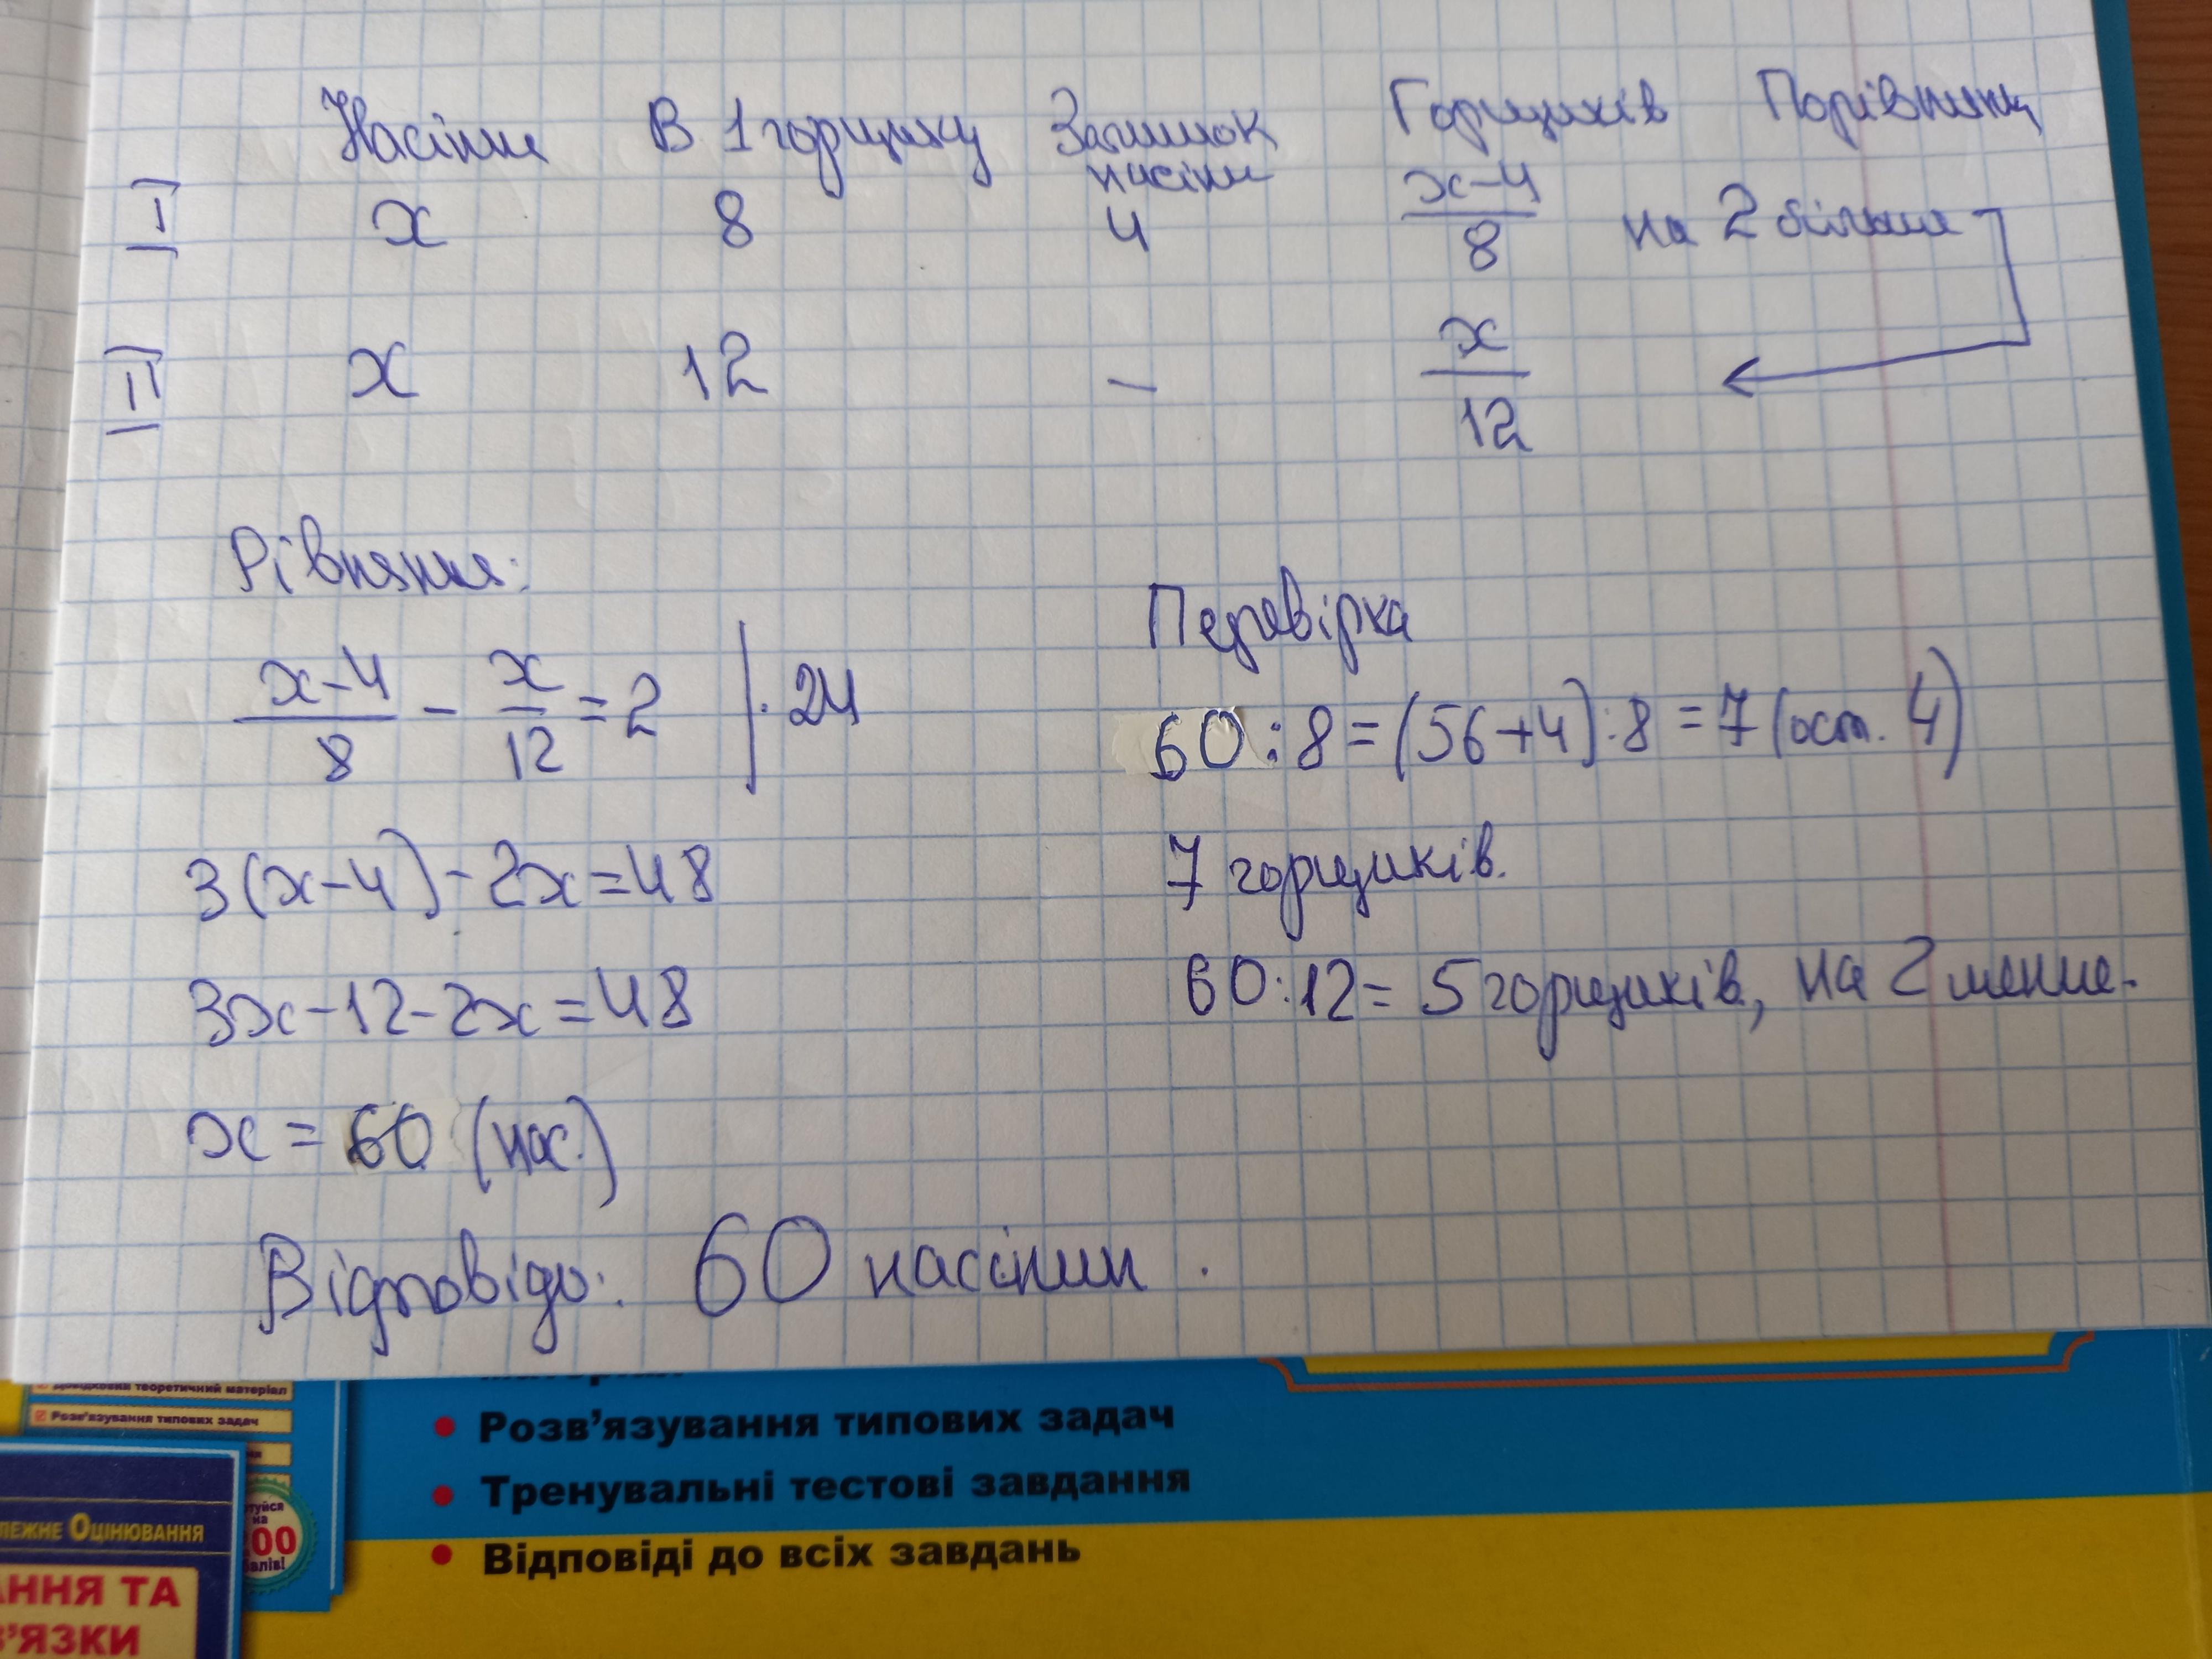 Насіння В 1 горщику Залишок насіння Горщиків Порівняння
I x 8 4 x-4/8 на 2 більше
II x 12 — x/12
Рівняння:
x-4/8 - x/12 = 2 | · 24
3(x-4)-2x=48
3x-12-2x=48
x = 60 (нас.)
Відповідь: 60 насінин.
Перевірка
60:8=(56+4):8=7(ост. 4)
7 горщиків.
60:12= 5 горщиків, на 2 менше.
Довідковий теоретичний матеріал
Розв'язування типових задач
на
ЛЕЖНЕ ОЦІНЮВАННЯ
АННЯ ТА
В'ЯЗКИ
• Розв'язування типових задач
• Тренувальні тестові завдання
• Відповіді до всіх завдань